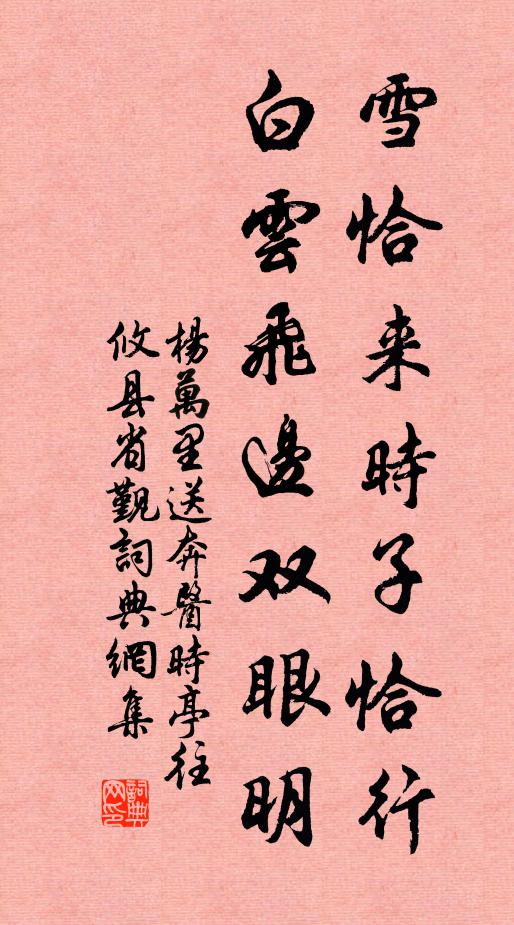 雪恰来時子恰行
白雲飛邊双眼明
楊萬里送奔醫時亭往
攸县省覲詞典網集
詞典网印